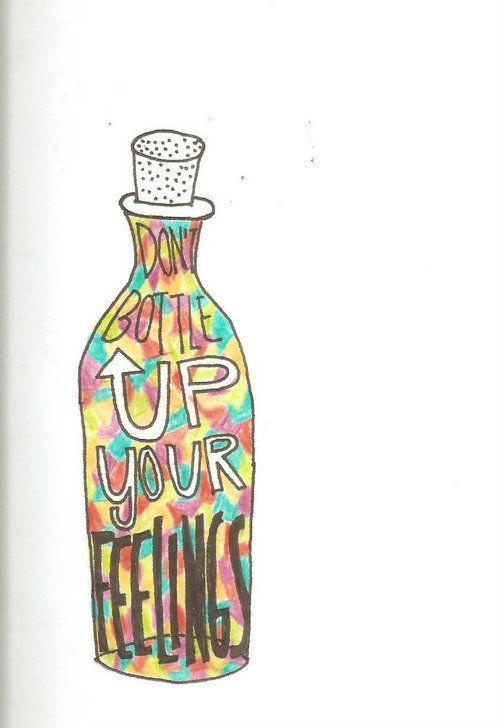 DON'T
BOTTLE
UP
YOUR
FEELINGS